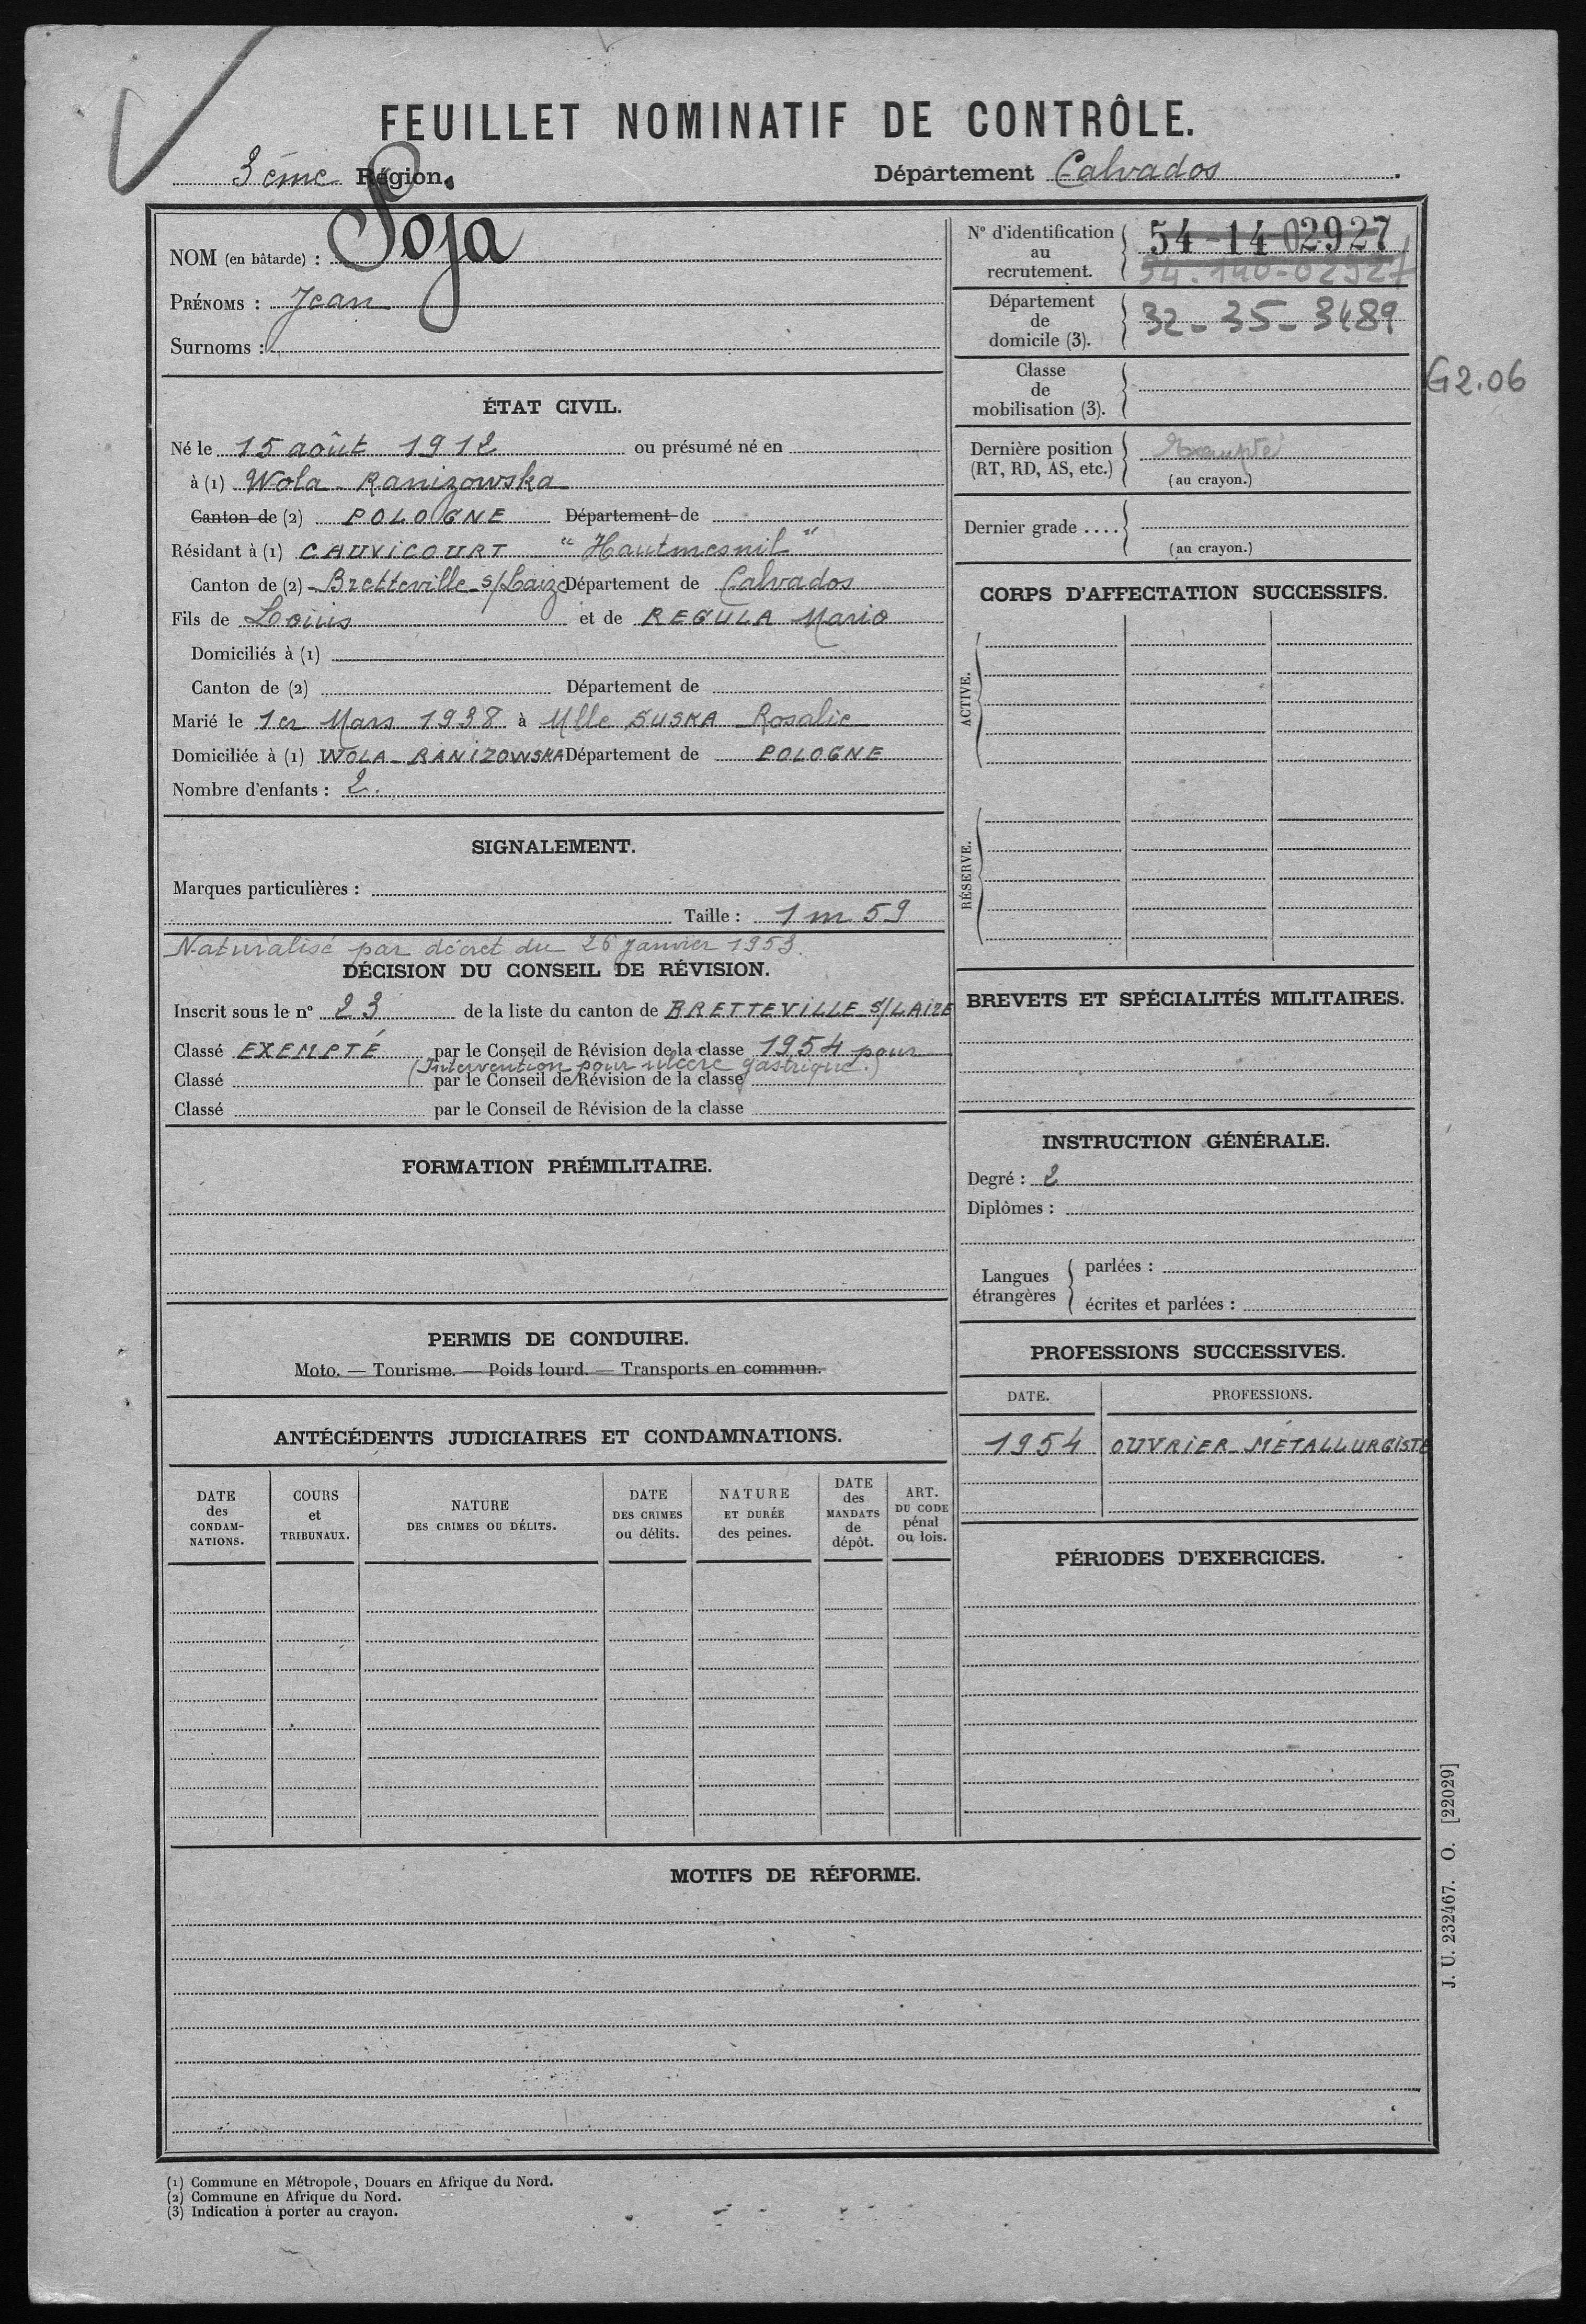 FEUILLET NOMINATIF DE CONTRÔLE.
3ème Région. Département Calvados.
NOM (en bâtarde) : Soja
PRÉNOMS : Jean
Surnoms :
ÉTAT CIVIL.
Né le 15 août 1912 ou présumé né en
à (1) Wola-Ranizowska
Canton de (2) POLOGNE Département de
Résidant à (1) CAUVICOURT "Hautmesnil"
Canton de (2) Bretteville s/Laize Département de Calvados
Fils de Louis et de REGULA Maria
Domiciliés à (1)
Canton de (2) Département de
Marié le 1er Mars 1938 à Mlle SUSKA Rosalie
Domiciliée à (1) WOLA-RANIZOWSKA Département de POLOGNE
Nombre d'enfants : 2.
SIGNALEMENT.
Marques particulières :
Taille : 1 m 59
Naturalisé par décret du 26 janvier 1953.
DÉCISION DU CONSEIL DE RÉVISION.
Inscrit sous le n° 23 de la liste du canton de BRETTEVILLE-S/LAIZE
Classé EXEMPTÉ par le Conseil de Révision de la classe 1954 pour
(Intervention pour ulcère gastrique.)
Classé par le Conseil de Révision de la classe
Classé par le Conseil de Révision de la classe
FORMATION PRÉMILITAIRE.
PERMIS DE CONDUIRE.
Moto. — Tourisme. — Poids lourd. — Transports en commun.
ANTÉCÉDENTS JUDICIAIRES ET CONDAMNATIONS.
DATE des CONDAM-NATIONS.
COURS et TRIBUNAUX.
NATURE DES CRIMES OU DÉLITS.
DATE DES CRIMES ou délits.
NATURE ET DURÉE des peines.
DATE des MANDATS de dépôt.
ART. DU CODE pénal ou lois.
N° d'identification au recrutement. 54-14-02927
54-140-02927
Département de domicile (3). 32-35-3489
Classe de mobilisation (3).
G2.06
Dernière position (RT, RD, AS, etc.) Exempté
(au crayon.)
Dernier grade ....
(au crayon.)
CORPS D'AFFECTATION SUCCESSIFS.
ACTIVE.
RÉSERVE.
BREVETS ET SPÉCIALITÉS MILITAIRES.
INSTRUCTION GÉNÉRALE.
Degré : 2
Diplômes :
Langues étrangères
parlées :
écrites et parlées :
PROFESSIONS SUCCESSIVES.
DATE. PROFESSIONS.
1954 OUVRIER-MÉTALLURGISTE
PÉRIODES D'EXERCICES.
MOTIFS DE RÉFORME.
J. U. 232467. O. [22029]
(1) Commune en Métropole, Douars en Afrique du Nord.
(2) Commune en Afrique du Nord.
(3) Indication à porter au crayon.